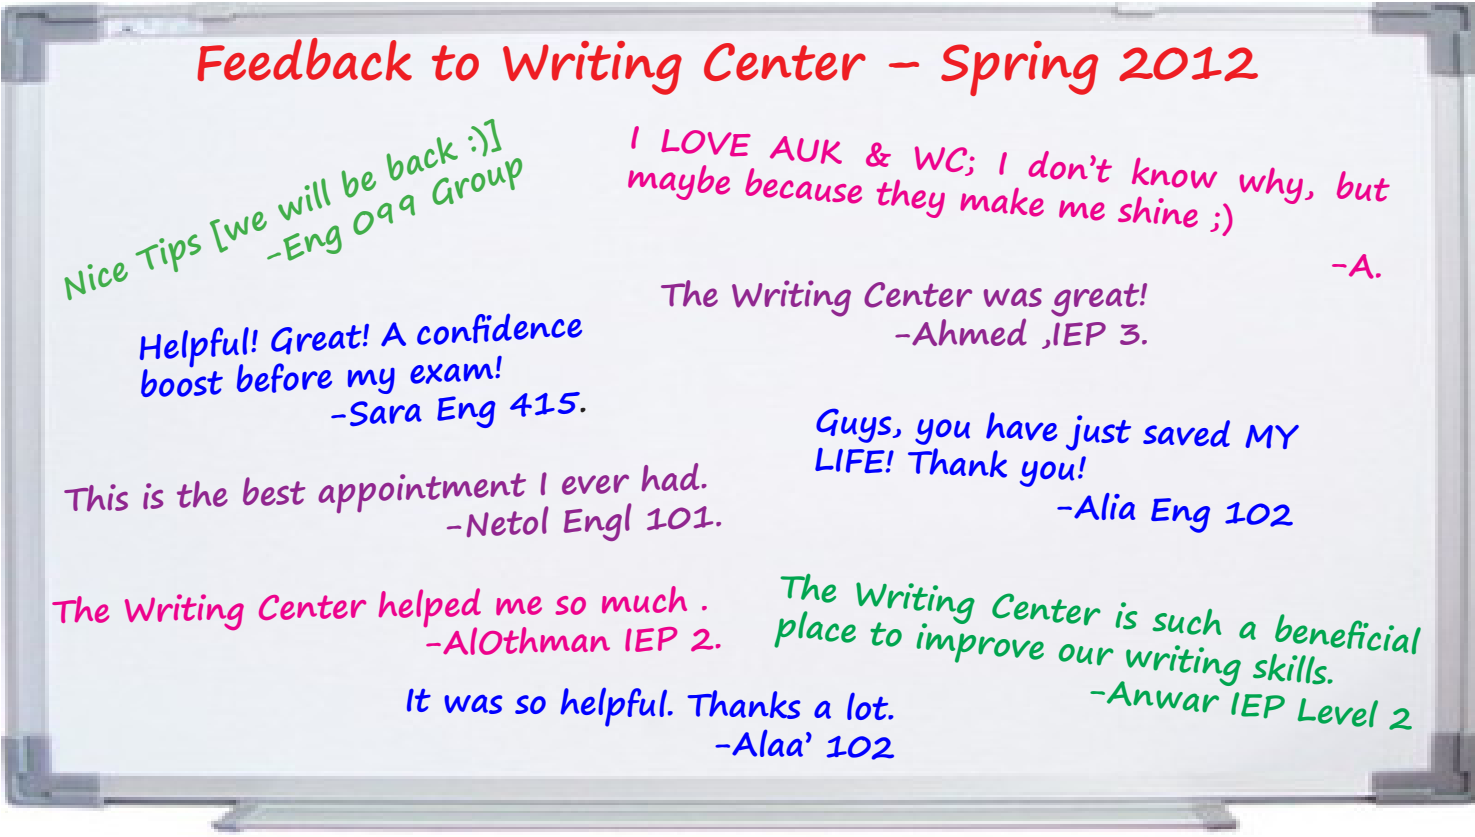 Feedback to Writing Center – Spring 2012
Nice Tips [we will be back :)]
-Eng 099 Group
I LOVE AUK & WC; I don't know why, but
maybe because they make me shine ;)
-A.
The Writing Center was great!
-Ahmed ,IEP 3.
Helpful! Great! A confidence
boost before my exam!
-Sara Eng 415.
Guys, you have just saved MY
LIFE! Thank you!
-Alia Eng 102
This is the best appointment I ever had.
-Netol Engl 101.
The Writing Center helped me so much .
-AlOthman IEP 2.
The Writing Center is such a beneficial
place to improve our writing skills.
-Anwar IEP Level 2
It was so helpful. Thanks a lot.
-Alaa' 102